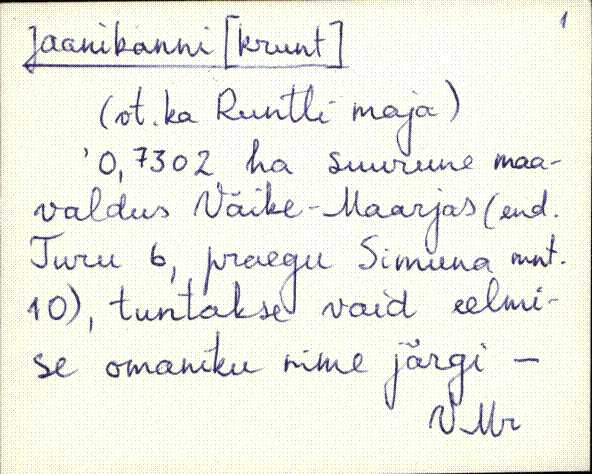 1
Jaanikanni [krunt]
(vt. ka Runtli maja)
'0,7302 ha suurune maa-
valdus Väike-Maarjas (end.
Turu 6, praegu Simuna mnt.
10), tuntakse vaid eelmi-
se omaniku nime järgi –
V-Mr